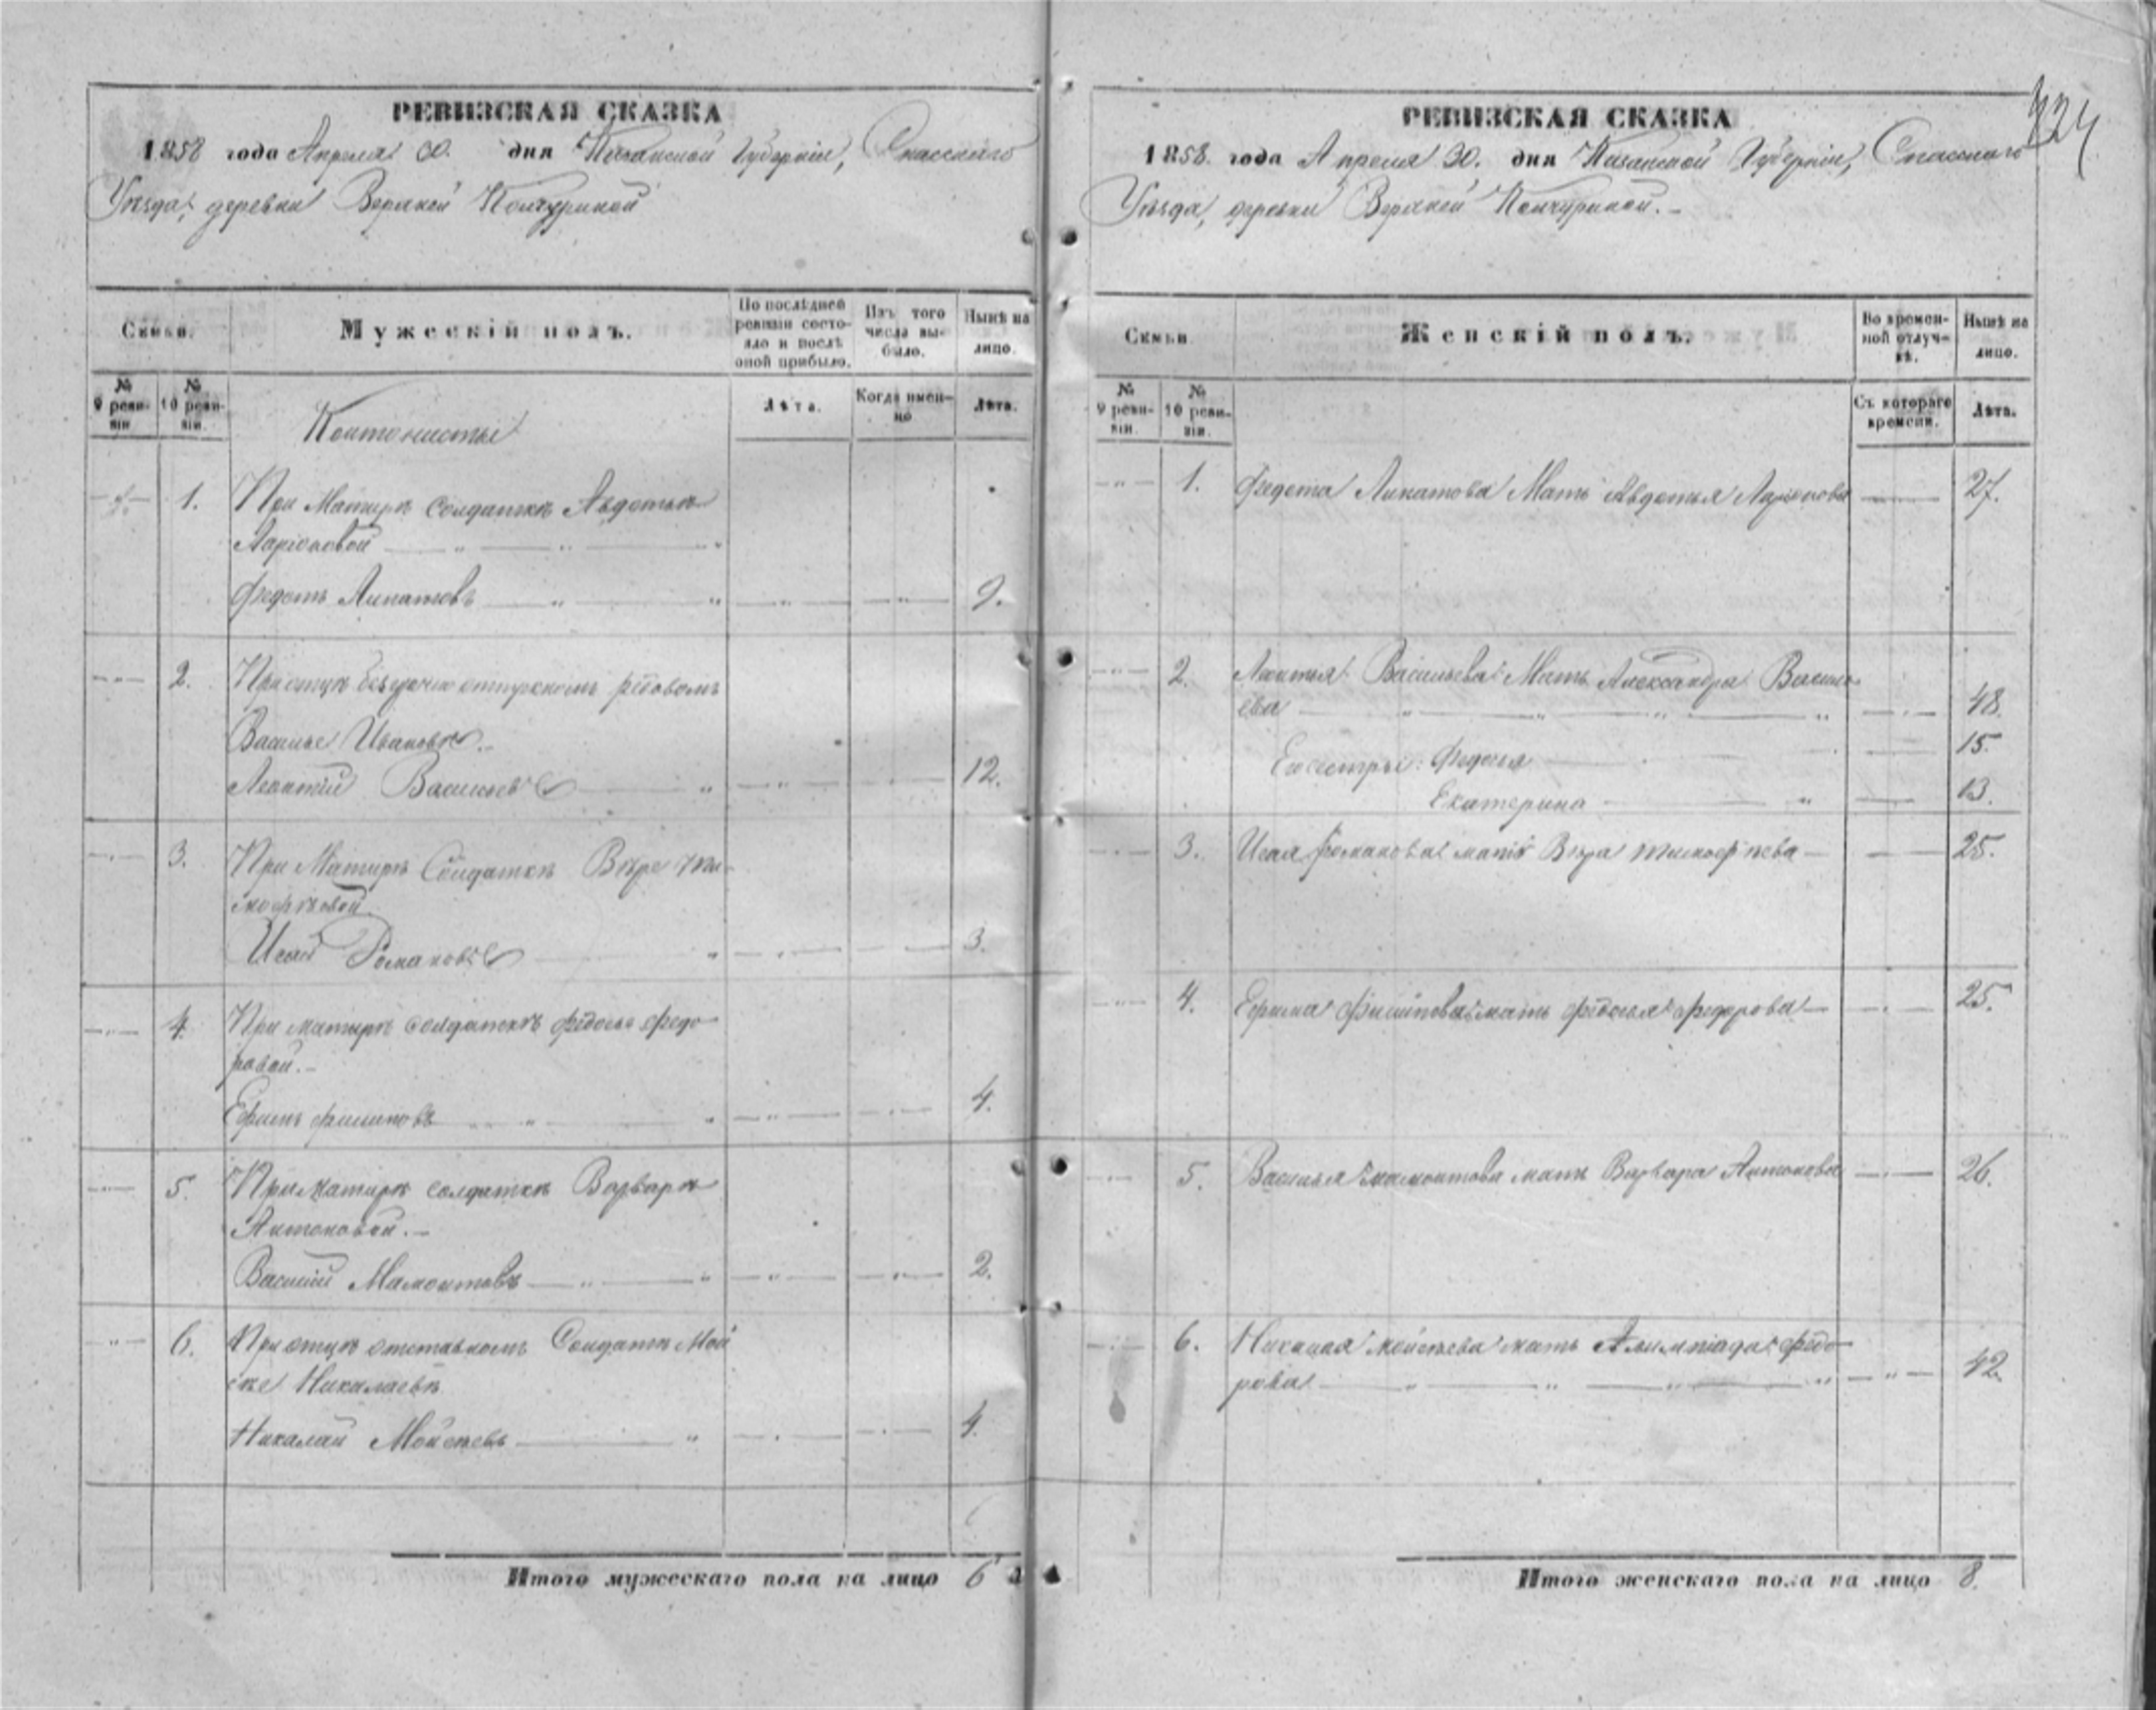 РЕВИЗСКАЯ СКАЗКА
1858 года Апреля 30. дня Казанской Губерніи, Спасскаго
Уѣзда, деревни Верхней
Семьи.
Мужескій полъ.
По послѣдней ревизіи состояло и послѣ оной прибыло.
Изъ того числа выбыло.
Нынѣ на лицо.
№ 9 ревизіи
№ 10 ревизіи.
Лѣта.
Когда именно
Лѣта.
Кантонисты
1. При Матирѣ солдаткѣ Авдотьѣ
Ларіоновой
Федотъ Липатовъ 9.
2. При отцѣ безсрочно отпускномъ рядовомъ
Василье Ивановѣ.
Леонтій Васильевъ 12.
3. При Матирѣ Солдаткѣ Вѣре Ти-
мофѣевой
Исай Романовъ 3.
4. При матирѣ солдаткѣ Федосье Федо
ровой.
Ефимъ Филиповъ 4.
5. При матирѣ солдаткѣ Варварѣ
Антоновой.
Василій Мамонтовъ 2.
6. При отцѣ отставномъ Солдатѣ Мой
сее Николаевѣ
Николай Мойсѣевъ 4.
Итого мужескаго пола на лицо 6
324
РЕВИЗСКАЯ СКАЗКА
1858. года Апреля 30. дня Казанской Губерніи, Спасскаго
Уѣзда, деревни Верхней
Семьи
Женскій полъ.
Во временной отлучкѣ.
Нынѣ на лицо.
№ 9 ревизіи.
№ 10 ревизіи.
Съ котораго времени.
Лѣта.
1. Федота Липатова Мать Авдотья Ларіонова 27.
2. Леонтья Васильева Мать Александра Василь
ева 48.
Его сестры: Федосья 15.
Екатерина 13.
3. Исая Романова мать Вѣра Тимофѣева 25.
4. Ефима Филипова мать Федосья Федорова 25.
5. Василья Мамонтова мать Варвара Антонова 26.
6. Николая Мойсѣева мать Алимпіада Федо
рова 42.
Итого женскаго пола на лицо 8.